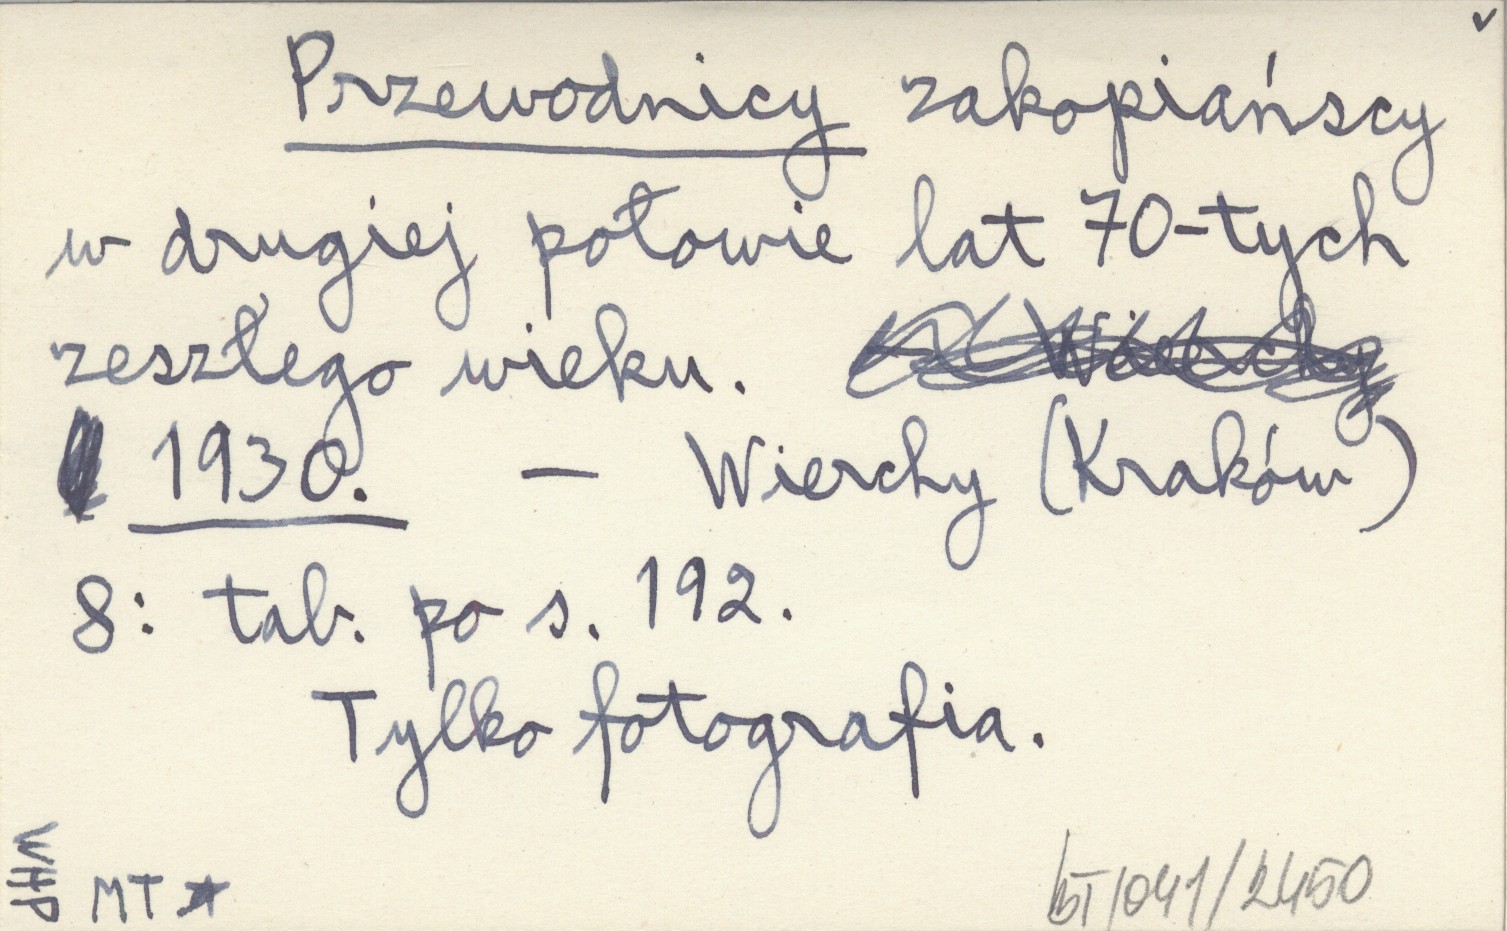 Przewodnicy zakopiańscy
w drugiej połowie lat 70-tych
zeszłego wieku.
1930. — Wierchy (Kraków)
8: tab. po s. 192.
Tylko fotografia.
WHP
MT
BT/041/2450